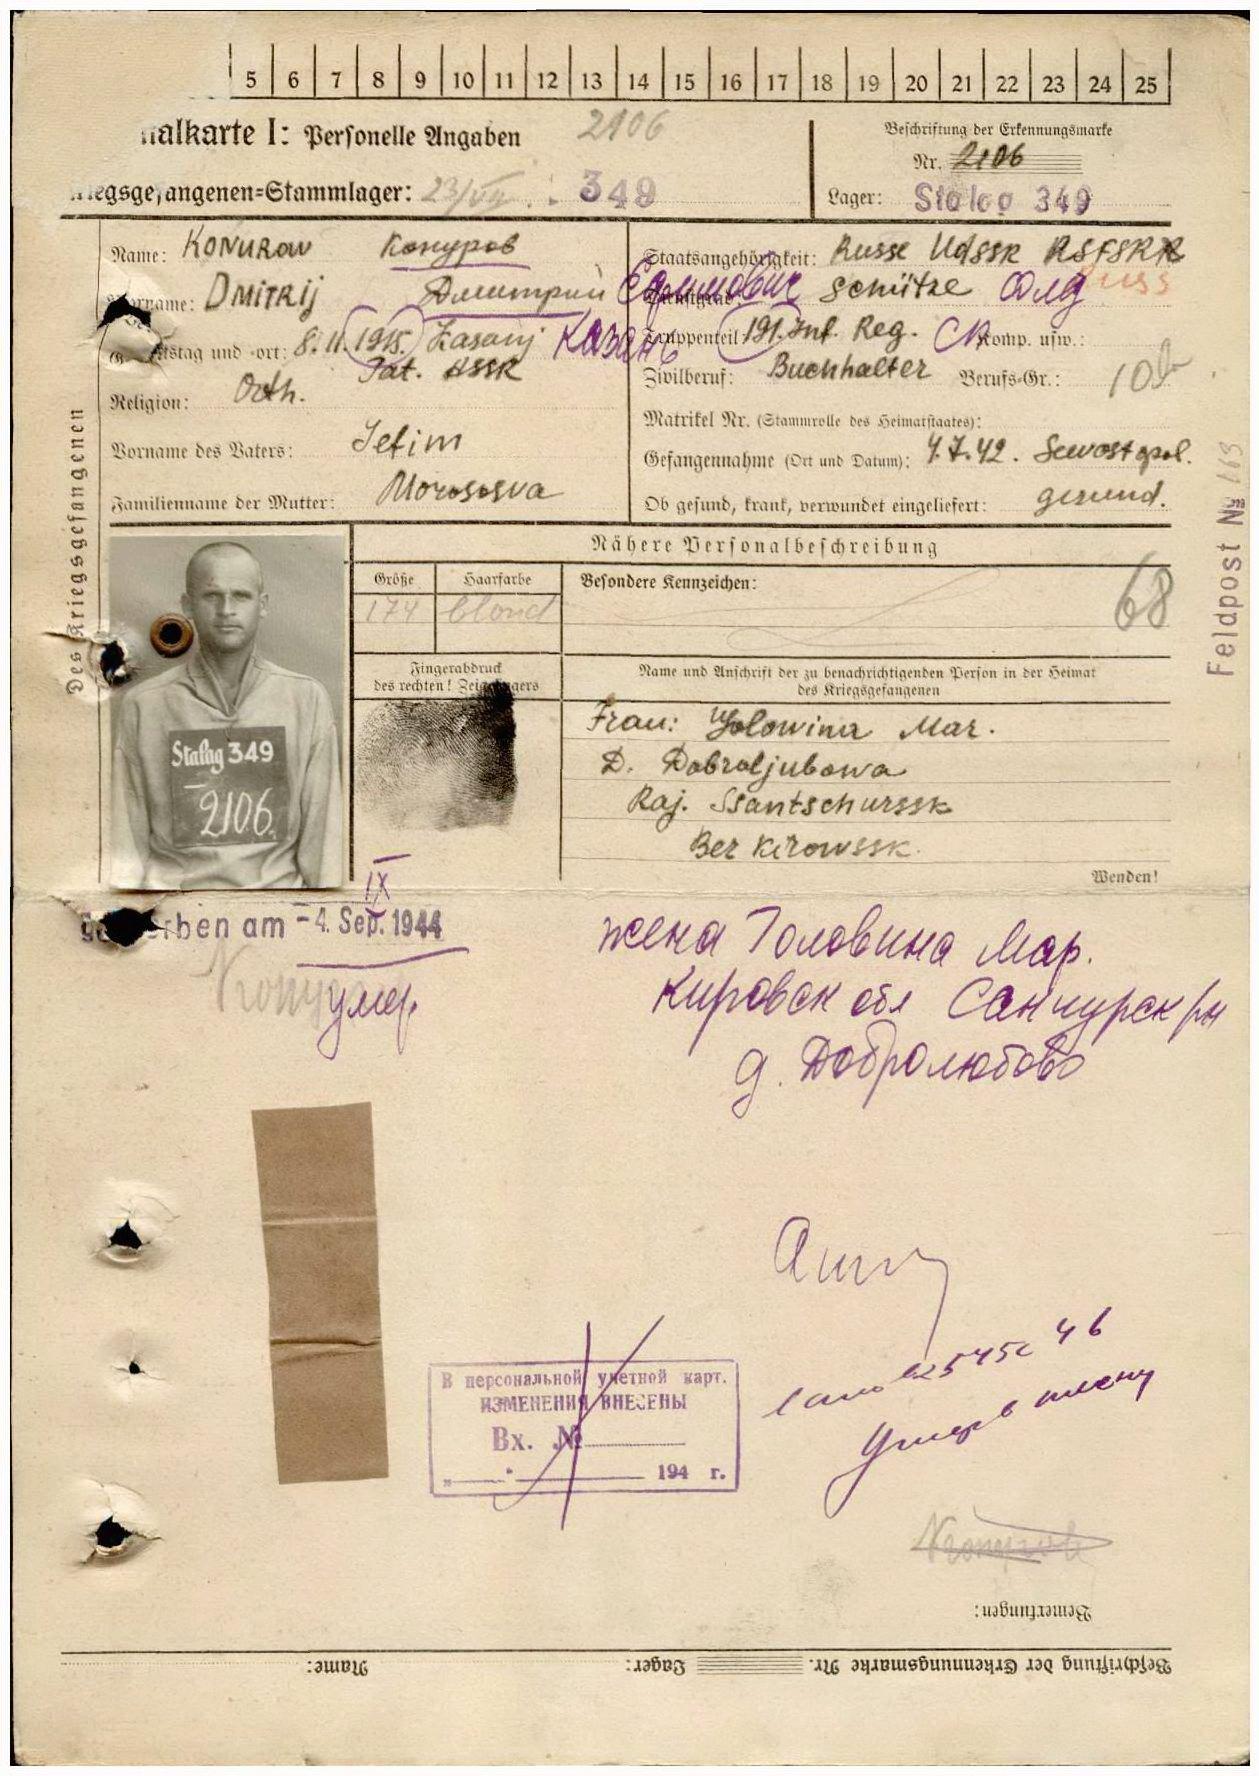 5 6 7 8 9 10 11 12 13 14 15 16 17 18 19 20 21 22 23 24 25
nalkarte I: Personelle Angaben 2106
Beschriftung der Erkennungsmarke
Nr. 2106
iegsgefangenen=Stammlager: 23/VII 349
Lager: Stalag 349
Name: Konurow Конуров
Staatsangehörigkeit: Russe UdSSR RSFSR
russ
Vorname: Dmitrij Дмитрий Ефимович
Dienstgrad: Schütze солд
Geburtstag und -ort: 8.11.1915. Kasanj Казань
Tat. ASSR
Truppenteil 191. Inf. Reg. СП Komp. usw.:
Zivilberuf: Buchhalter Berufs=Gr.: 10b
Religion: Orth.
Matrikel Nr. (Stammrolle des Heimatstaates):
Vorname des Vaters: Jefim
Gefangennahme (Ort und Datum): 4.7.42. Sewostopol.
Familienname der Mutter: Morososva
Ob gesund, krank, verwundet eingeliefert: gesund.
Des Kriegsgefangenen
Feldpost Nr
Nähere Personalbeschreibung
Größe Haarfarbe Besondere Kennzeichen:
174 blond
68
Fingerabdruck
des rechten! Zeigefingers
Name und Anschrift der zu benachrichtigenden Person in der Heimat
des Kriegsgefangenen
Frau: Golowina Mar.
D. Dobroljubowa
Raj. Ssantschurssk
Ber Kirowssk.
Stalag 349
2106.
Wenden!
IX
gestorben am -4. Sep. 1944
умер
жена Головина Мар.
Кировск обл Санчурск рн
д. Добролюбово
В персональной учетной карт.
ИЗМЕНЕНИЯ ВНЕСЕНЫ
Вх. №
" " 194 г.
Умер в плену
Конуров
Bemerkungen:
Beschriftung der Erkennungsmarke Nr. Lager: Name: